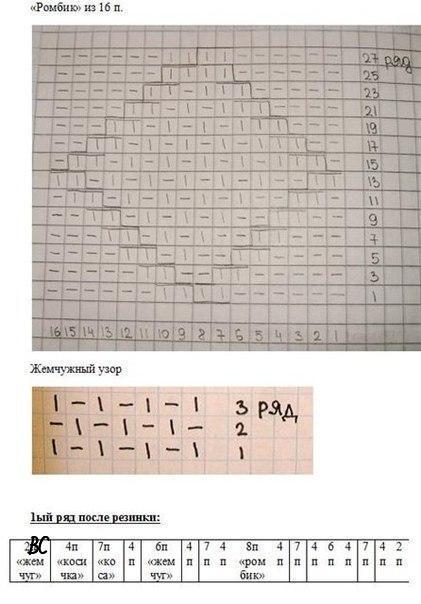 «Ромбик» из 16 п.
27 ряд
25
23
21
19
17
15
13
11
9
7
5
3
1
16 15 14 13 12 11 10 9 8 7 6 5 4 3 2 1
Жемчужный узор
| – | – | – | 3 ряд
– | – | – | – 2
| – | – | – | 1
1ый ряд после резинки:
ВС 4п 7п 4 6п 4 7 4 8п 4 7 4 6 4 7 4 2
«жем «коси «ко п «жем п п п «ром п п п п п п п п
чуг» чка» са» чуг» бик»